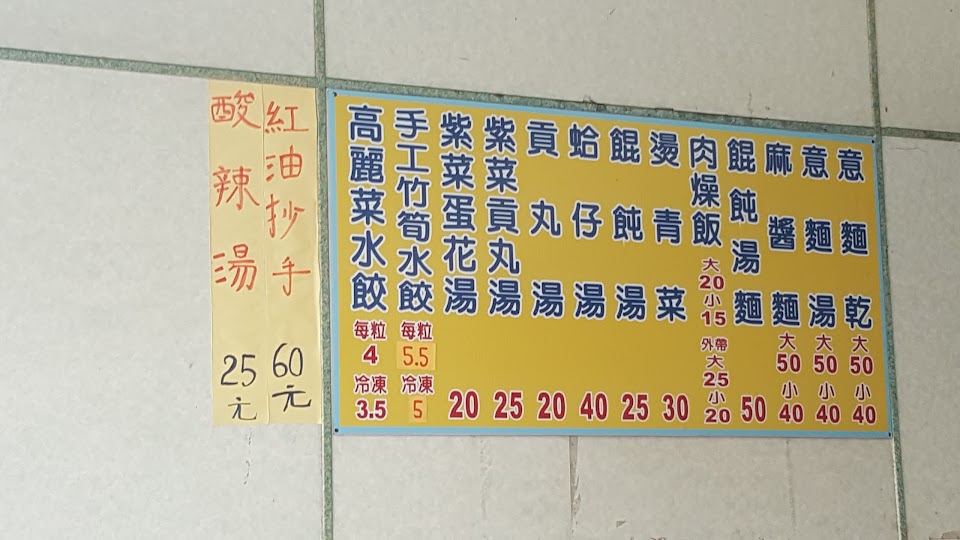 意麵乾 大50 小40
意麵湯 大50 小40
麻醬麵 大50 小40
餛飩湯麵 50
肉燥飯 大20小15 外帶大25小20
燙青菜 30
餛飩湯 25
蛤仔湯 40
貢丸湯 20
紫菜貢丸湯 25
紫菜蛋花湯 20
手工竹筍水餃 每粒5.5 冷凍5
高麗菜水餃 每粒4 冷凍3.5
紅油抄手 60元
酸辣湯 25元